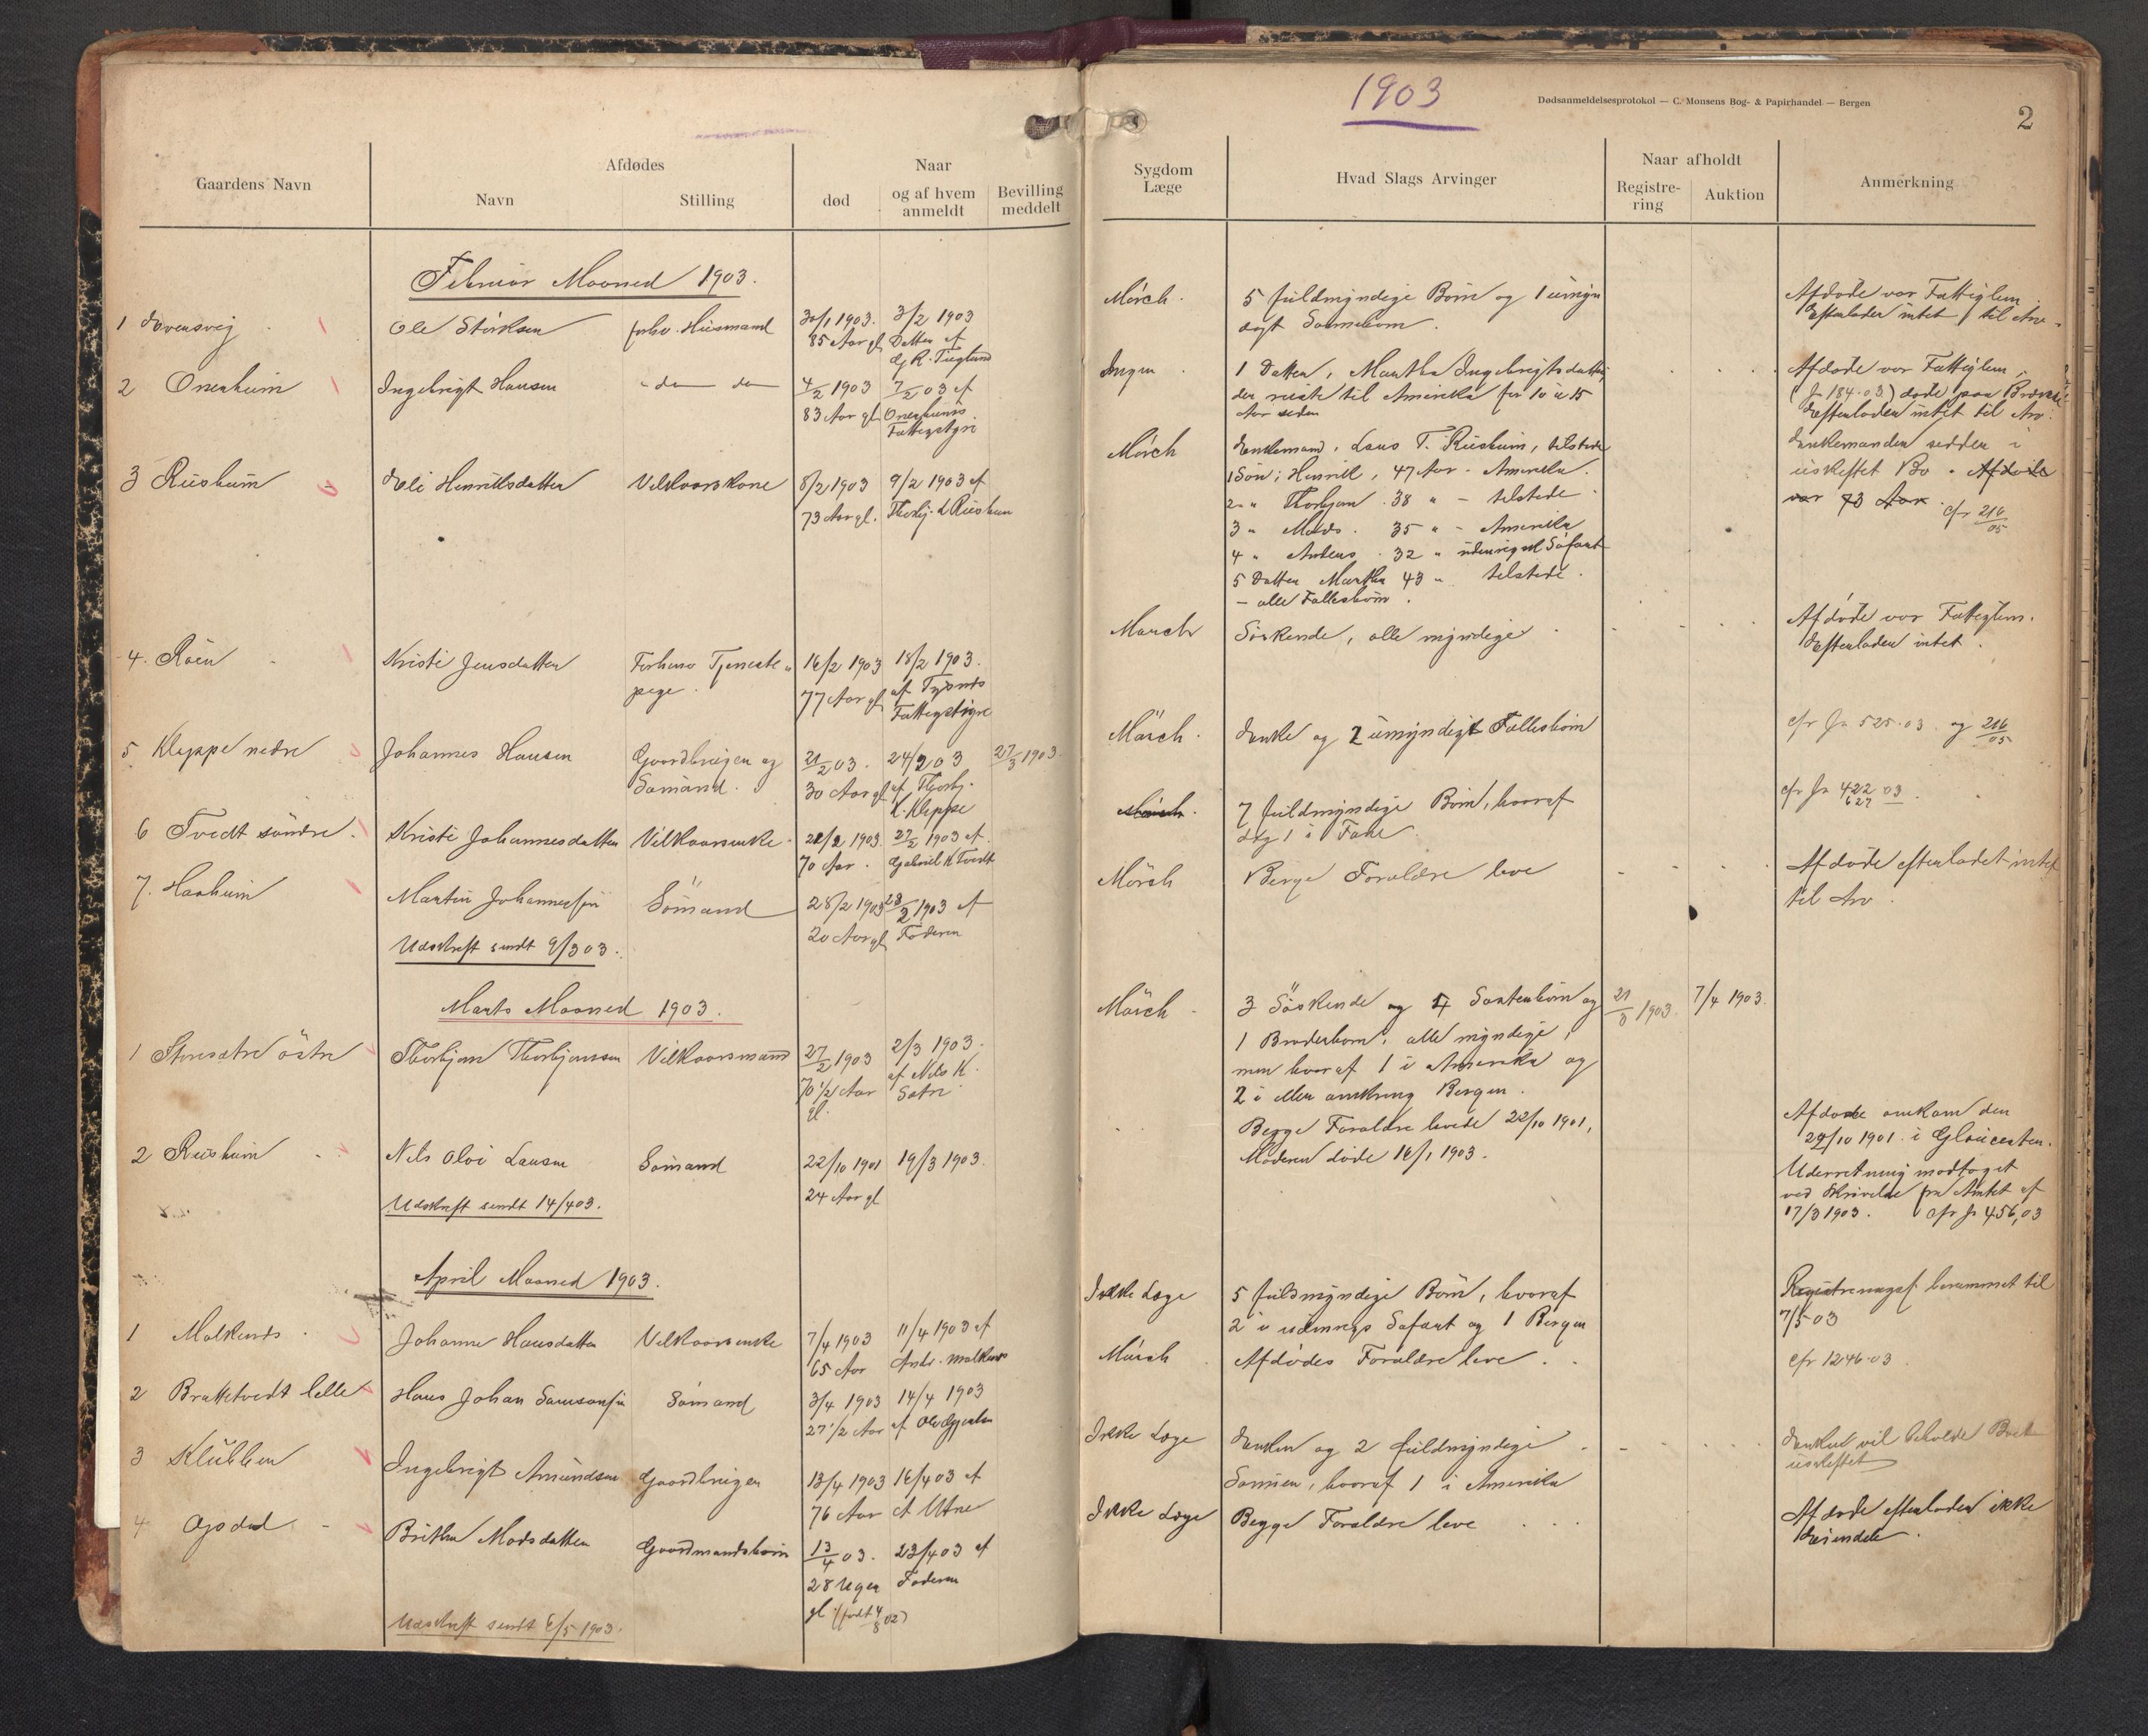 1903
Dødsanmeldelsesprotokol — C. Monsens Bog- & Papirhandel — Bergen
2
Gaardens Navn
Afdødes
Navn
Stilling
Naar
død
og af hvem anmeldt
Bevilling meddelt
Sygdom Læge
Hvad Slags Arvinger
Naar afholdt
Registrering
Auktion
Anmerkning
Februar Maaned 1903.
1
Ole Størksen
forhv. Husmand
30/1 1903. 3/2 1903
85 Aar gl Datter af
Mørch.
5 fuldmyndige Børn og 1 umyn
digt Sønnebarn.
Afdøde var Fattiglem.
Efterlader intet til Arv.
2 Onerheim
Ingebrigt Hansen
do do
4/2 1903 7/2 03 af
83 Aar gl Onerheims
Fattigstyre
Ingen
1 Datter, Martha Ingebrigtsdatter,
der reiste til Amerika for 10 à 15
Aar siden
Afdøde var Fattiglem.
(Jr 184.03) døde paa
Efterlader intet til Arv.
3 Rusheim
Eli Henriksdatter
Vilkaarskone
8/2 1903 9/2 1903 af
73 Aar gl. Thorbj. L Rusheim
Mørch
Enkemand, Lars T. Rusheim, tilstede
1 Søn: Henrik, 47 Aar - Amerika.
2 " Thorbjørn 38 " - tilstede
3 " Mads. 35 " - Amerika
4 " Anders 32 " udenrigsk Søfart
5 Datter Martha 43 " tilstede.
- alle Fællesbørn.
Enkemanden sidder i
uskiftet Bo. Afdøde
var 73 Aar. cfr 216/05
4. Røen
Kristi Jensdatter
Forhenv Tjeneste
pige.
16/2 1903 18/2 1903.
77 Aar gl af Tysnes
Fattigstyre
Mørch
Søskende, alle myndige
Afdøde var Fattiglem.
Efterlader intet.
5. Kleppe nedre
Johannes Hansen
Gaardbruger og
Sømand.
21/2 03. 24/2 03 27/3 1903.
30 Aar gl af Thorbj.
L. Kleppe
Mørch.
Enke og 2 umyndige Fællesbørn
cfr Jr 525.03 og 216/05
6 Tvedt søndre.
Kristi Johannesdatter
Vilkaarsenke
22/2 1903. 27/2 1903 af
70 Aar. Gabriel K Tvedt
Mørch.
7 fuldmyndige Børn, hvoraf
cfr Jr 422 03
627
7. Haaheim
Martin Johannessøn
Sømand
28/2 1903 af
20 Aar gl Faderen
Mørch
Begge Forældre leve
Afdøde efterlader intet
til Arv.
Udskrift sendt 9/3 03.
Marts Maaned 1903.
1 Stensætre østre
Thorbjørn Thorbjørnsen
Vilkaarsmand
27/2 1903 2/3 1903.
70 1/2 Aar af Nils K.
gl. Sætre
Mørch
3 Søskende og 4 Søsterbørn og
1 Broderbarn, alle myndige,
men hvoraf 1 i Amerika og
2 i eller omkring Bergen.
21/3 1903. 7/4 1903.
2 Rusheim
Nils Olai Larsen
Sømand
22/10 1901 19/3 1903.
24 Aar gl
Begge Forældre levede 22/10 1901,
Moderen døde 16/1 1903.
Afdøde omkom den
22/10 1901 i Gloucester.
Underretning modtaget
ved Skrivelse fra Amtet af
17/3 1903. cfr Jr 456,03
Udskrift sendt 14/4 03.
April Maaned 1903.
1 Malkenes
Johanne Hansdatter
Vilkaarsenke
7/4 1903 11/4 1903 af
65 Aar Andr. Malkenes
Ikke Læge
5 fuldmyndige Børn, hvoraf
2 i udenrigs Søfart og 1 Bergen
Registreringsf. berammet til
7/5 03
2 Brattetvedt lille
Hans Johan Samsonsøn
Sømand
3/4 1903 14/4 1903
27 1/2 Aar af
Mørch
Afdødes Forældre leve.
cfr 1246.03
3 Klubben
Ingebrigt Amundsen
Gaardbruger
13/4 1903 16/4 03 af
76 Aar A Utne
Ikke Læge
Enken og 2 fuldmyndige
Sønner, hvoraf 1 i Amerika
Enken vil beholde Boet
uskiftet
4 Opdal
Brithe Madsdatter
Gaardmandsbarn
13/4 03. 23/4 03 af
28 Uger Faderen
gl (født 4/8 02)
Ikke Læge
Begge Forældre leve
Afdøde efterlader ikke
Eiendele.
Udskrift sendt 6/5 1903.